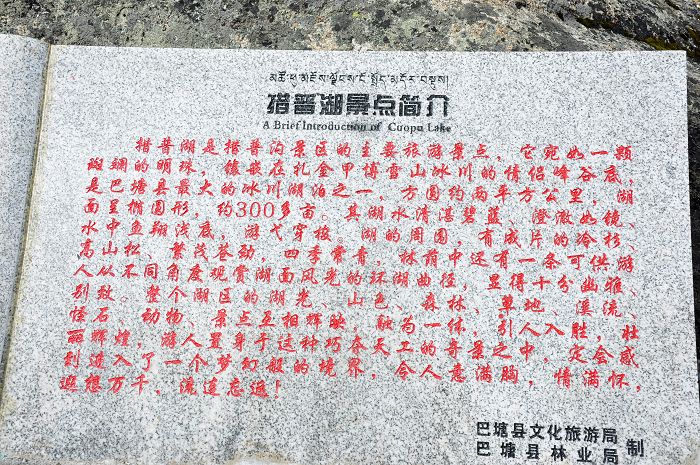 མཚོ་ཕ་མཛེས་ལྗོངས་ངོ་སྤྲོད་མདོར་བསྡུས།
措普湖景点简介
A Brief Introduction of Cuopu Lake
措普湖是措普沟景区的主要旅游景点，它宛如一颗
斑斓的明珠，镶嵌在扎金甲博雪山冰川的情侣峰谷底，
是巴塘县最大的冰川湖泊之一，方圆约两平方公里，湖
面呈椭圆形，约300多亩。其湖水清湛碧蓝、澄澈如镜、
水中鱼翔浅底，游弋穿梭，湖的周围，有成片的冷杉、
高山松、繁茂苍劲，四季常青，林荫中还有一条可供游
人从不同角度观赏湖面风光的环湖曲径，显得十分幽雅、
别致。整个湖区的湖光、山色、森林、草地、溪流、
怪石、动物、景点互相辉映，融为一体，引人入胜，壮
丽辉煌，游人置身于这种巧夺天工的奇景之中，定会感
到进入了一个梦幻般的境界，令人意满胸，情满怀，
遐想万千，流连忘返！
巴塘县文化旅游局
巴塘县林业局 制